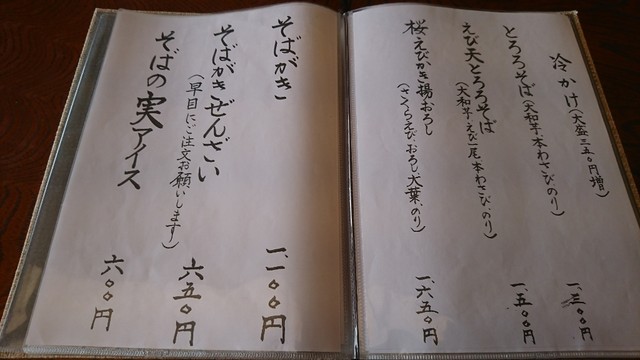 冷かけ(大盛三五〇円増)
一、三〇〇円
とろろそば(大和芋・本わさび・のり)
一、五〇〇円
えび天とろろそば
(大和芋・えび一尾・本わさび・のり)
桜えびかき揚おろし
(さくらえび、おろし、大葉、のり)
一、六五〇円
そばがき
一、一〇〇円
そばがきぜんざい
(早目にご注文お願いします)
六五〇円
そばの実アイス
六〇〇円